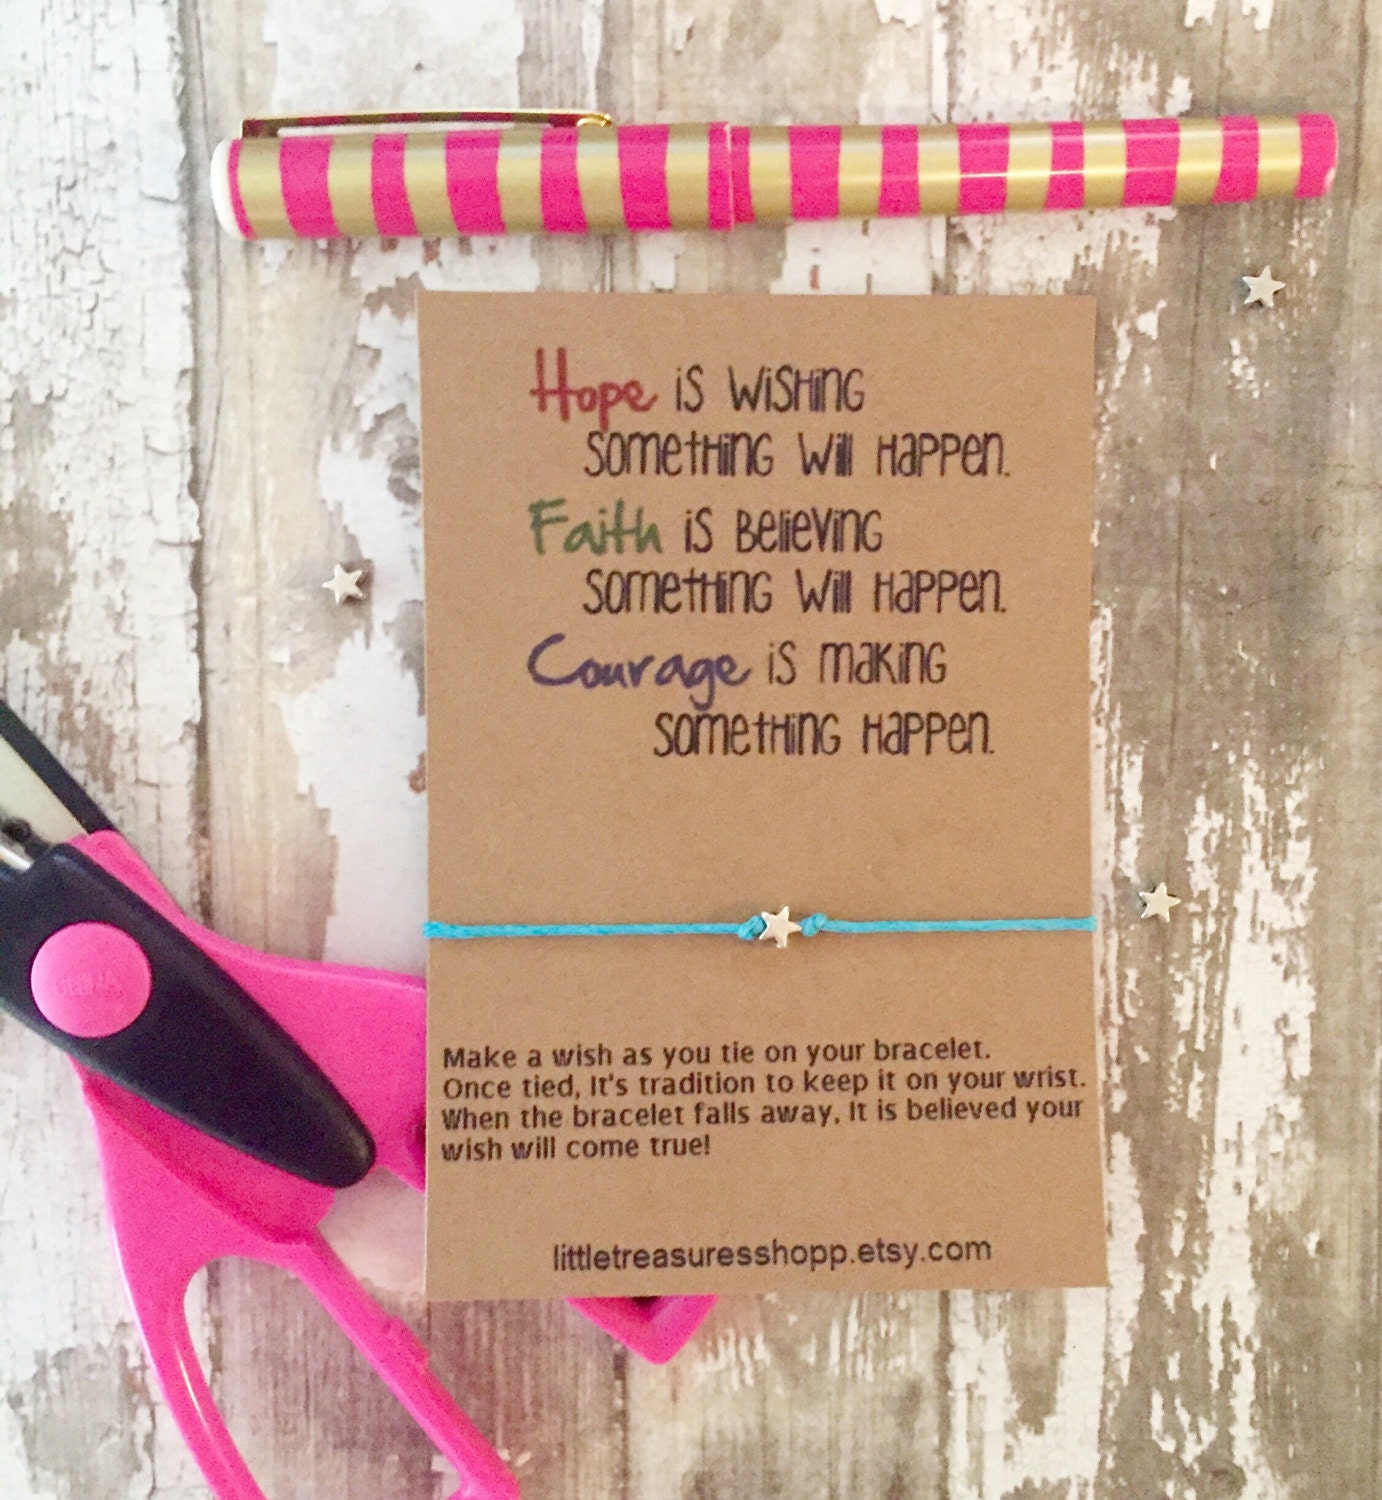 Hope is wishing
something will happen.
Faith is believing
something will happen.
Courage is making
something happen.
Make a wish as you tie on your bracelet.
Once tied, It's tradition to keep it on your wrist.
When the bracelet falls away, It is believed your
wish will come true!
littletreasuresshopp.etsy.com